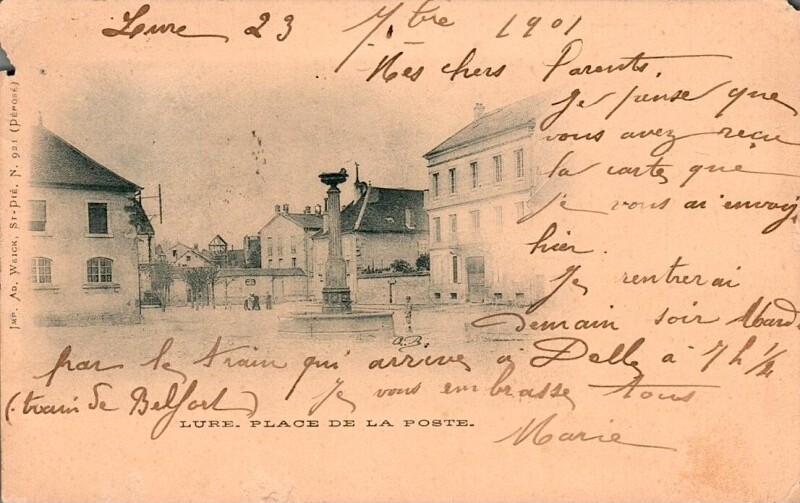 Lure 23 7bre 1901
Mes chers Parents,
Je pense que
vous avez reçu
la carte que
je vous ai envoyé
hier.
Je rentrerai
Demain soir Mardi
par le train qui arrive à Delle à 7h 1/2
(train de Belfort) Je vous embrasse tous
Marie
A.B.
LURE. PLACE DE LA POSTE.
IMP. AD. WEICK, ST-DIÉ, N. 921 (DÉPOSÉ)